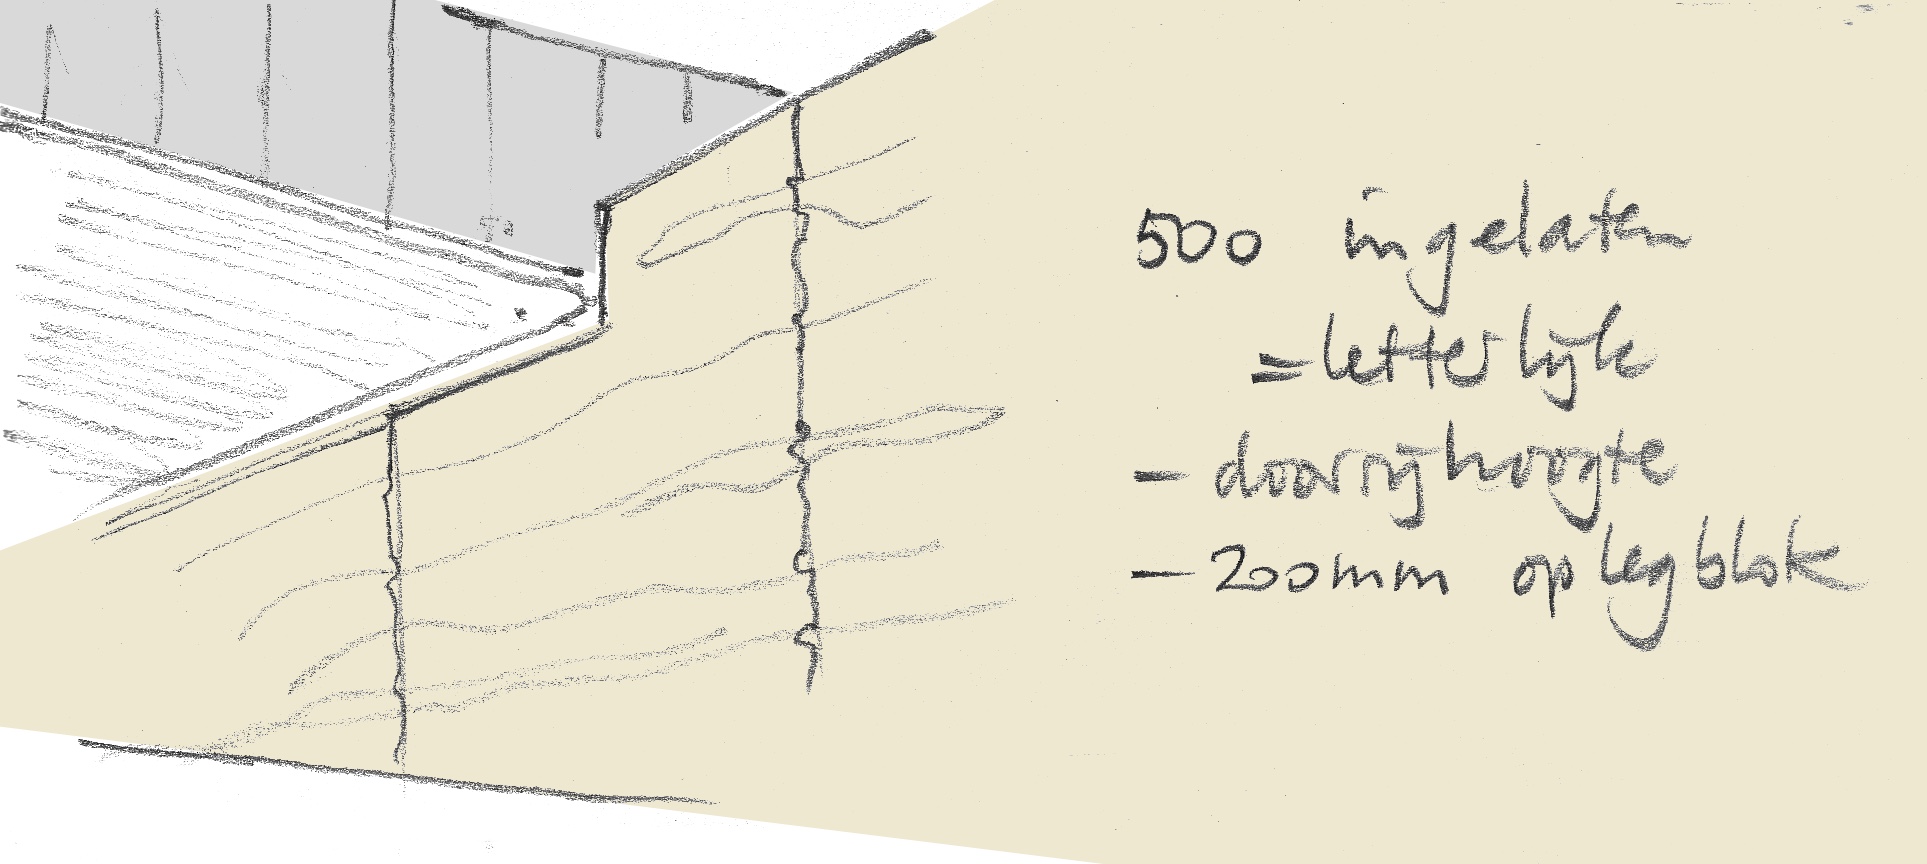 500 ingelaten
= letterlijk
- doorrijhoogte
- 200mm oplegblok